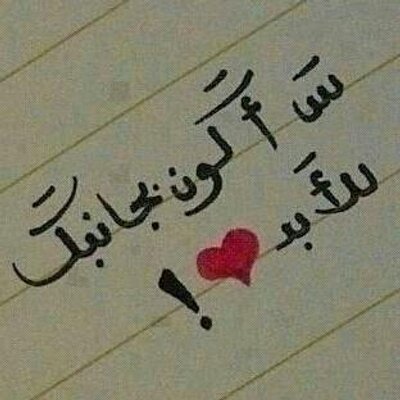 سَأكون بجانبك
للأَبد ❤ !